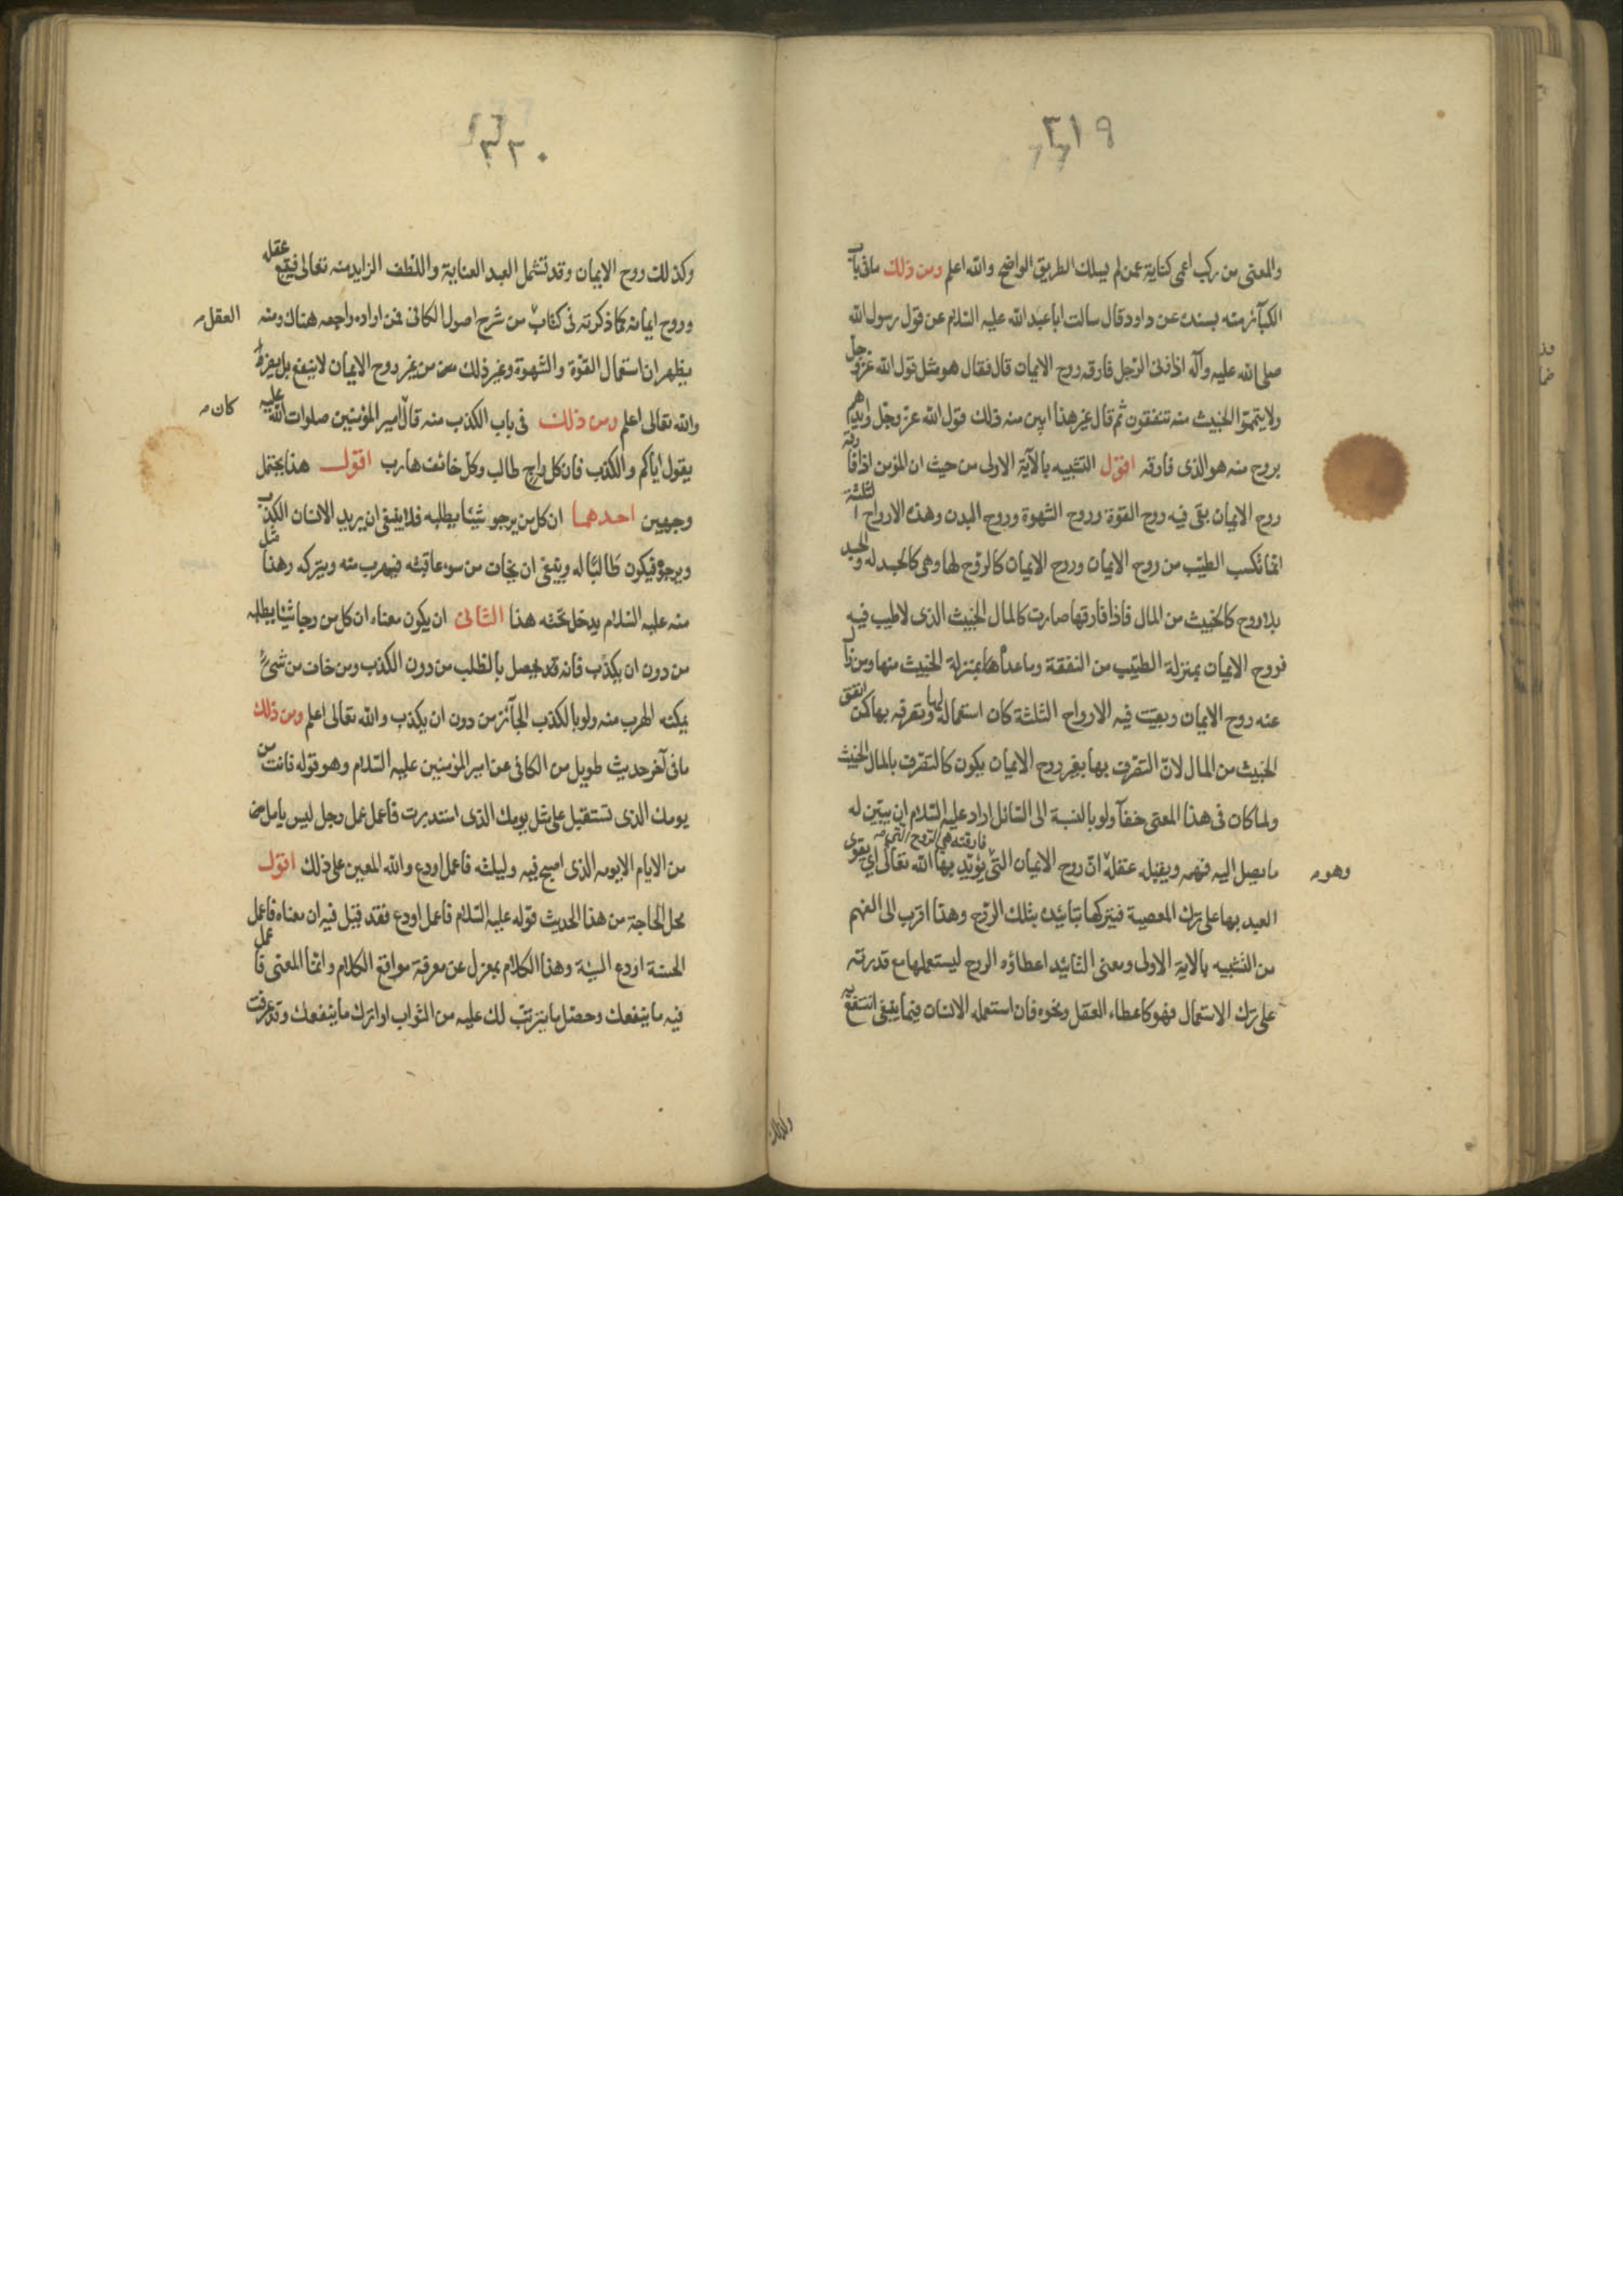 ٣١٩
والمعنى من ركب اعمى كناية عمن لم يسلك الطريق الواضح والله اعلم ومن ذلك ما فى باب
الكبآئر منه بسنده عن داود قال سالت ابا عبد الله عليه السّلام عن قول رسول الله
صلى الله عليه وآله اذا زنى الرّجل فارقه روح الايمان قال فقال هو مثل قول الله عزّ وجل
ولا يتمموا الخبيث منه تنفقون ثم قال غير هذا ابين منه ذلك قول الله عزّ وجلّ وايدهم
بروح منه هو الذى فارقه اقول التشبيه بالآية الاولى من حيث ان المؤمن اذا فارقته
روح الايمان بقى فيه روح القوّة وروح الشهوة وروح البدن وهذه الارواح الثلثة
انما تكسب الطيّب من روح الايمان وروح الايمان كالرّوح لها وهى كالجسد له والجسد
بلا روح كالخبيث من المال فاذا فارقها صارت كالمال الخبيث الذى لا طيب فيه
فروح الايمان بمنزلة الطيّب من النفقة وما عداها بمنزلة الخبيث منها ومن زال
عنه روح الايمان وبقيت فيه الارواح الثلثة كان استعماله لها وتصرفه بها كمن انفق
الخبيث من المال لانّ التصّرف بها بغير روح الايمان يكون كالتصّرف بالمال الخبيث
ولما كان فى هذا المعنى خفآ ولو بالنسبة الى السّائل اراد عليه السّلام ان يبيّن له
ما يصل اليه فهمه ويقبله عقله انّ روح الايمان التى فارقته هى الرّوح التى يؤيّد بها الله تعالى اى يقوى
وهو
العبد بها على ترك المعصية فيتركها بتائيده بتلك الرّوح وهذا اقرب الى الفهم
من التشبيه بالاية الاولى ومعنى التائيد اعطاؤه الروح ليستعملها مع قدرته
على ترك الاستعمال فهو كاعطاء العقل ونحوه فان استعمله الانسان فيما ينبغى انتفع به
وكذلك
٣٢٠
وكذلك روح الايمان وقد تشمل العبد العناية واللطف الزايد منه تعالى فيتبع عقله
وروح ايمانه كما ذكرته فى كتاب من شرح اصول الكافى فمن اراده راجعه هناك ومنه
العقل
يظهر ان استعمال القوّة والشهوة وغير ذلك من غير روح الايمان لا ينفع بل يضرّ
والله تعالى اعلم ومن ذلك فى باب الكذب منه قال امير المؤمنين صلوات الله عليه
كان
يقول ايّاكم والكذب فان كل راج طالب وكلّ خائف هارب اقول هذا يحتمل
وجهين احدهما ان كل من يرجو شيئا يطلبه فلا ينبغى ان يريد الانسان الكذب
ويرجوه فيكون طالبًا له وينبغى ان يخاف من سوء عاقبته فيهرب منه ويتركه وهذا مثل
منه عليه السّلام يدخل تحته هذا الثانى ان يكون معناه ان كل من رجا شيئا يطلبه
من دون ان يكذّب فانه قد يحصل بالطلب من دون الكذب ومن خاف من شىء
يمكنه الهرب منه ولو بالكذب الجآئز من دون ان يكذب والله تعالى اعلم ومن ذلك
ما فى آخر حديث طويل من الكافى عن امير المؤمنين عليه السّلام وهو قوله فانت من
يومك الذى تستقبل على مثل يومك الذى استدبرت فاعمل عمل رجل ليس يامل
من الايام الا يومه الذى اصبح فيه وليلته فاعمل اودع والله المعين على ذلك اقول
محل الحاجة من هذا الحديث قوله عليه السّلام فاعمل اودع فقد قيل فيه ان معناه فاعمل
الحسنة اودع السيئة وهذا الكلام بمعزل عن معرفة مواقع الكلام وانما المعنى فاعمل
فيه ما ينفعك وحصّل ما يترتّب لك عليه من الثواب او اترك ما ينفعك وقد عرفت